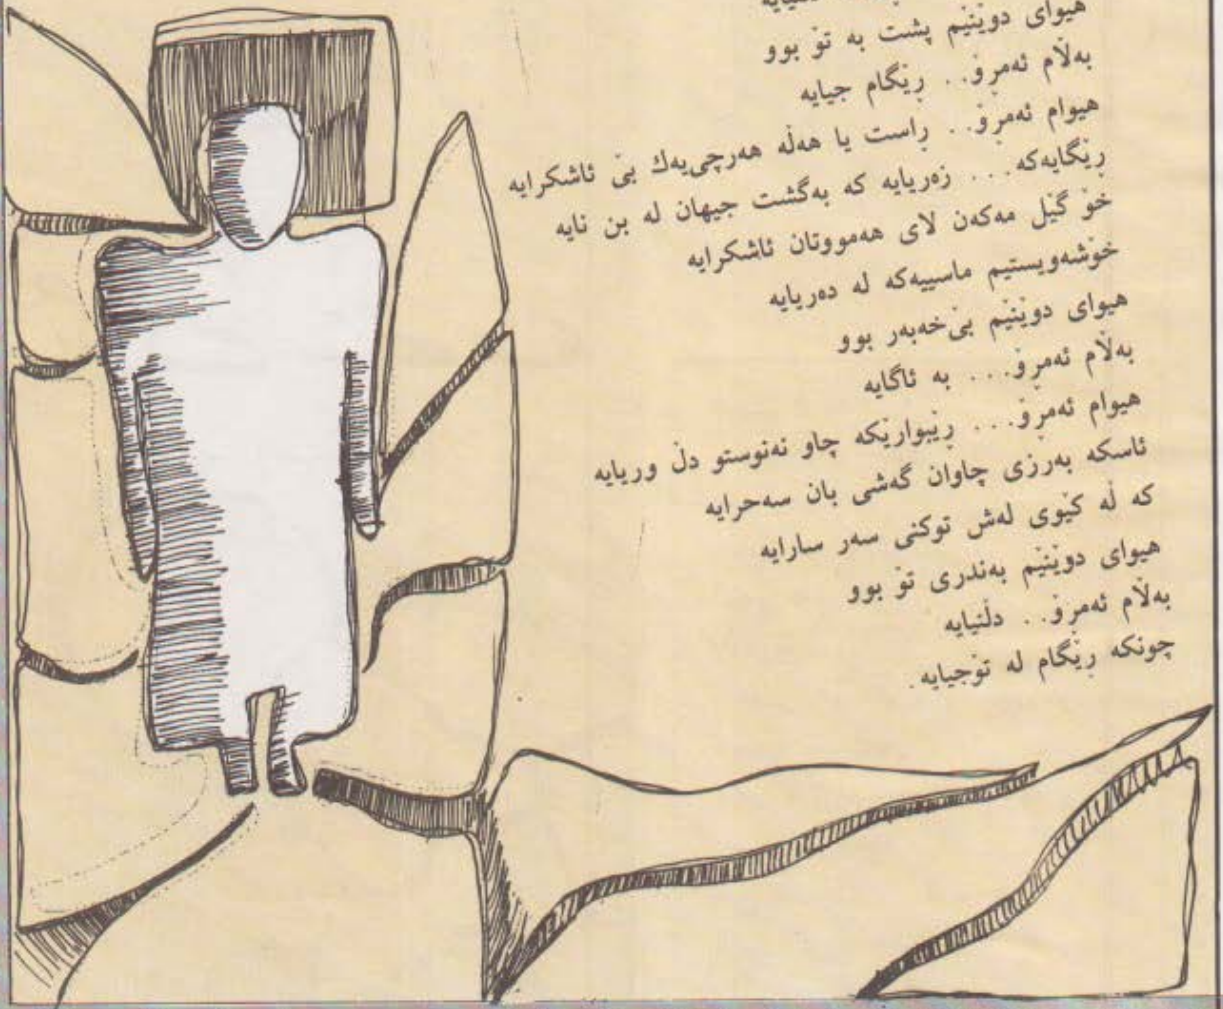 هیوای دوێنێم پشت به تۆ بوو
بەڵام ئەمڕۆ. . ڕێگام جیایه
هیوام ئەمڕۆ. . ڕاست یا هەڵه هەرچی‌یەك بێ ئاشکرایه
ڕێگایەکه. . . زەریایه که بەگشت جیهان له بن نایه
خۆ گێل مەکەن لای هەمووتان ئاشکرایه
خۆشەویستیم ماسییەکه له دەریایه
هیوای دوێنێم بێ‌خەبەر بوو
بەڵام ئەمڕۆ. . . به ئاگایه
هیوام ئەمڕۆ. . . ڕێبوارێکه چاو نەنوستو دڵ وریایه
ئاسکه بەرزی چاوان گەشی بان سەحرایه
که له کێوی لەش توکنی سەر سارایه
هیوای دوێنێم بەندری تۆ بوو
بەڵام ئەمڕۆ. . دڵنیایه
چونکه ڕێگام له تۆجیایه.